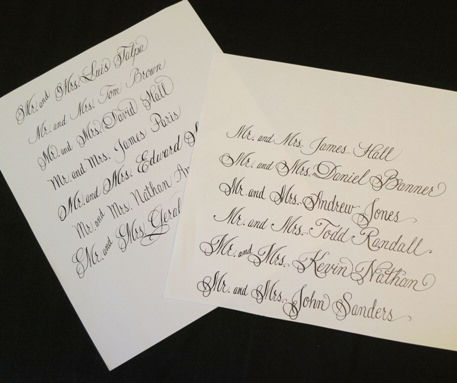 Mr. and Mrs. Luis Talpa
Mr. and Mrs. Tom Brown
Mr. and Mrs. David Hall
Mr. and Mrs. James Paris
Mr. and Mrs. Edward
Mr. and Mrs. Nathan
Mr. and Mrs.
Mr. and Mrs. James Hall
Mr. and Mrs. Daniel Banner
Mr. and Mrs. Andrew Jones
Mr. and Mrs. Todd Randall
Mr. and Mrs. Kevin Nathan
Mr. and Mrs. John Sanders